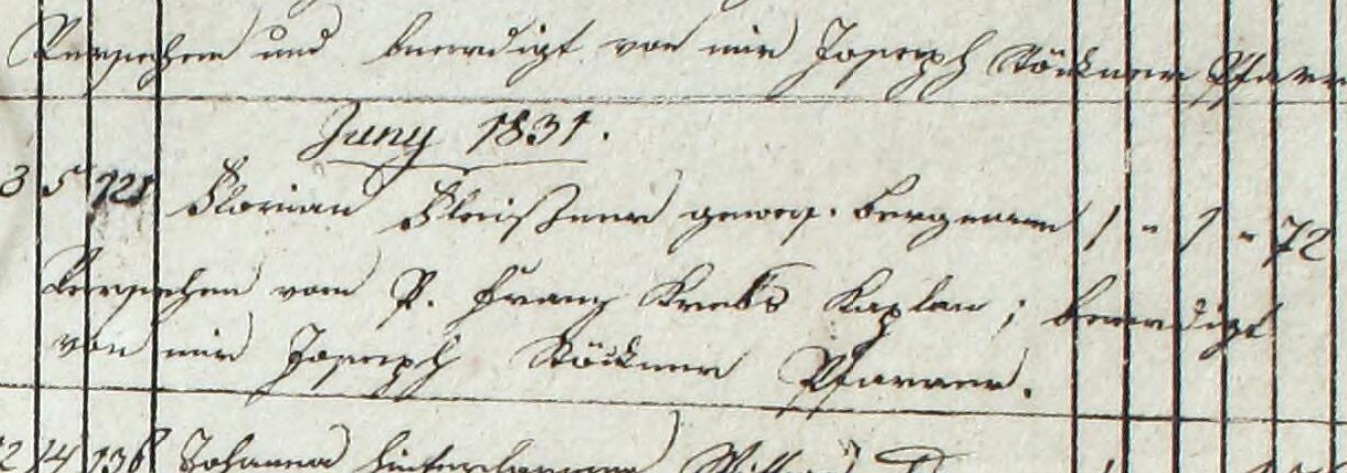 Versehen und beerdigt von mir Joseph Stöckner Pfarr
Juny 1831.
3 5 121 Florian Fleißner gewes. Bergmann 1 " 1 " 72
Versehen vom P. Franz Krebs Kaplan; beerdigt
von mir Joseph Stöckner Pfarrer.
2 14 136 Johanna